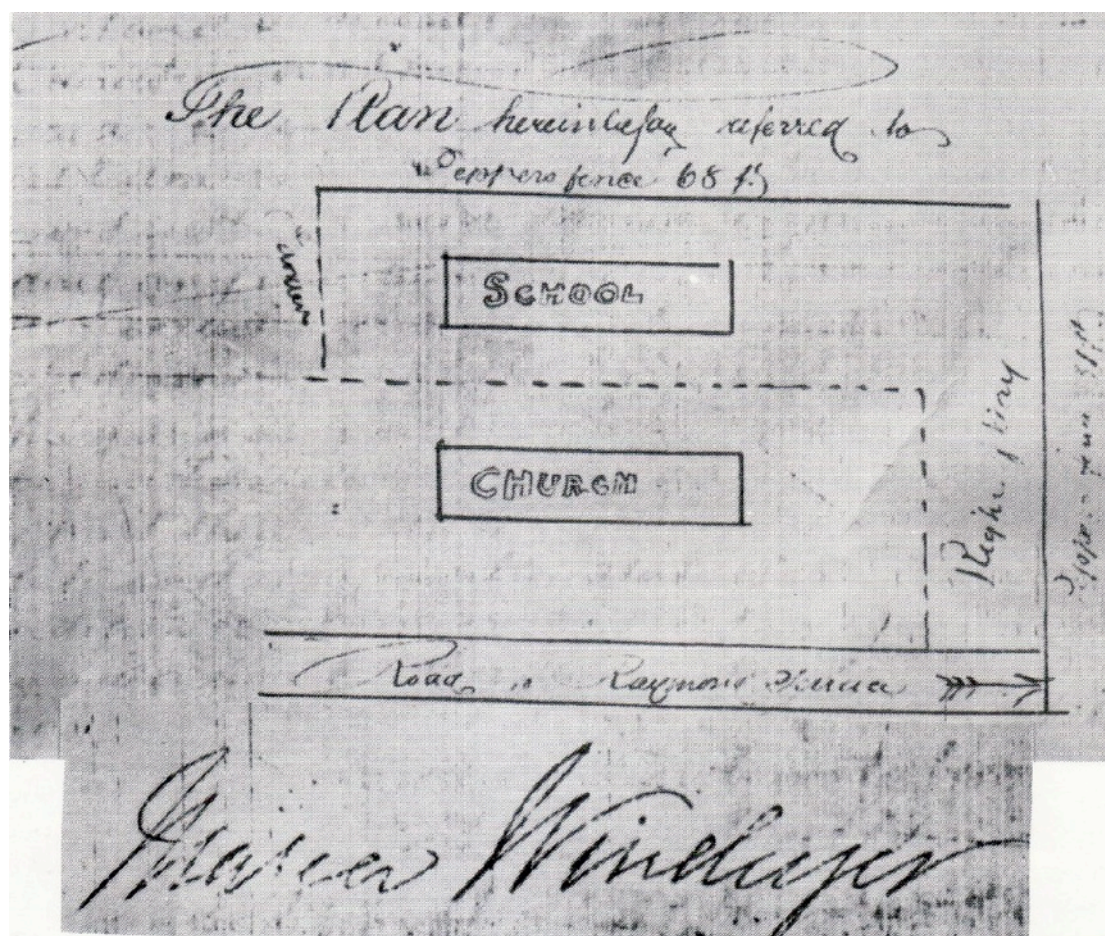 The Plan hereinbefore referred to
Peppers fence 68 ft
SCHOOL
CHURCH
Right of Way
Road to Raymond Terrace
Windeyer